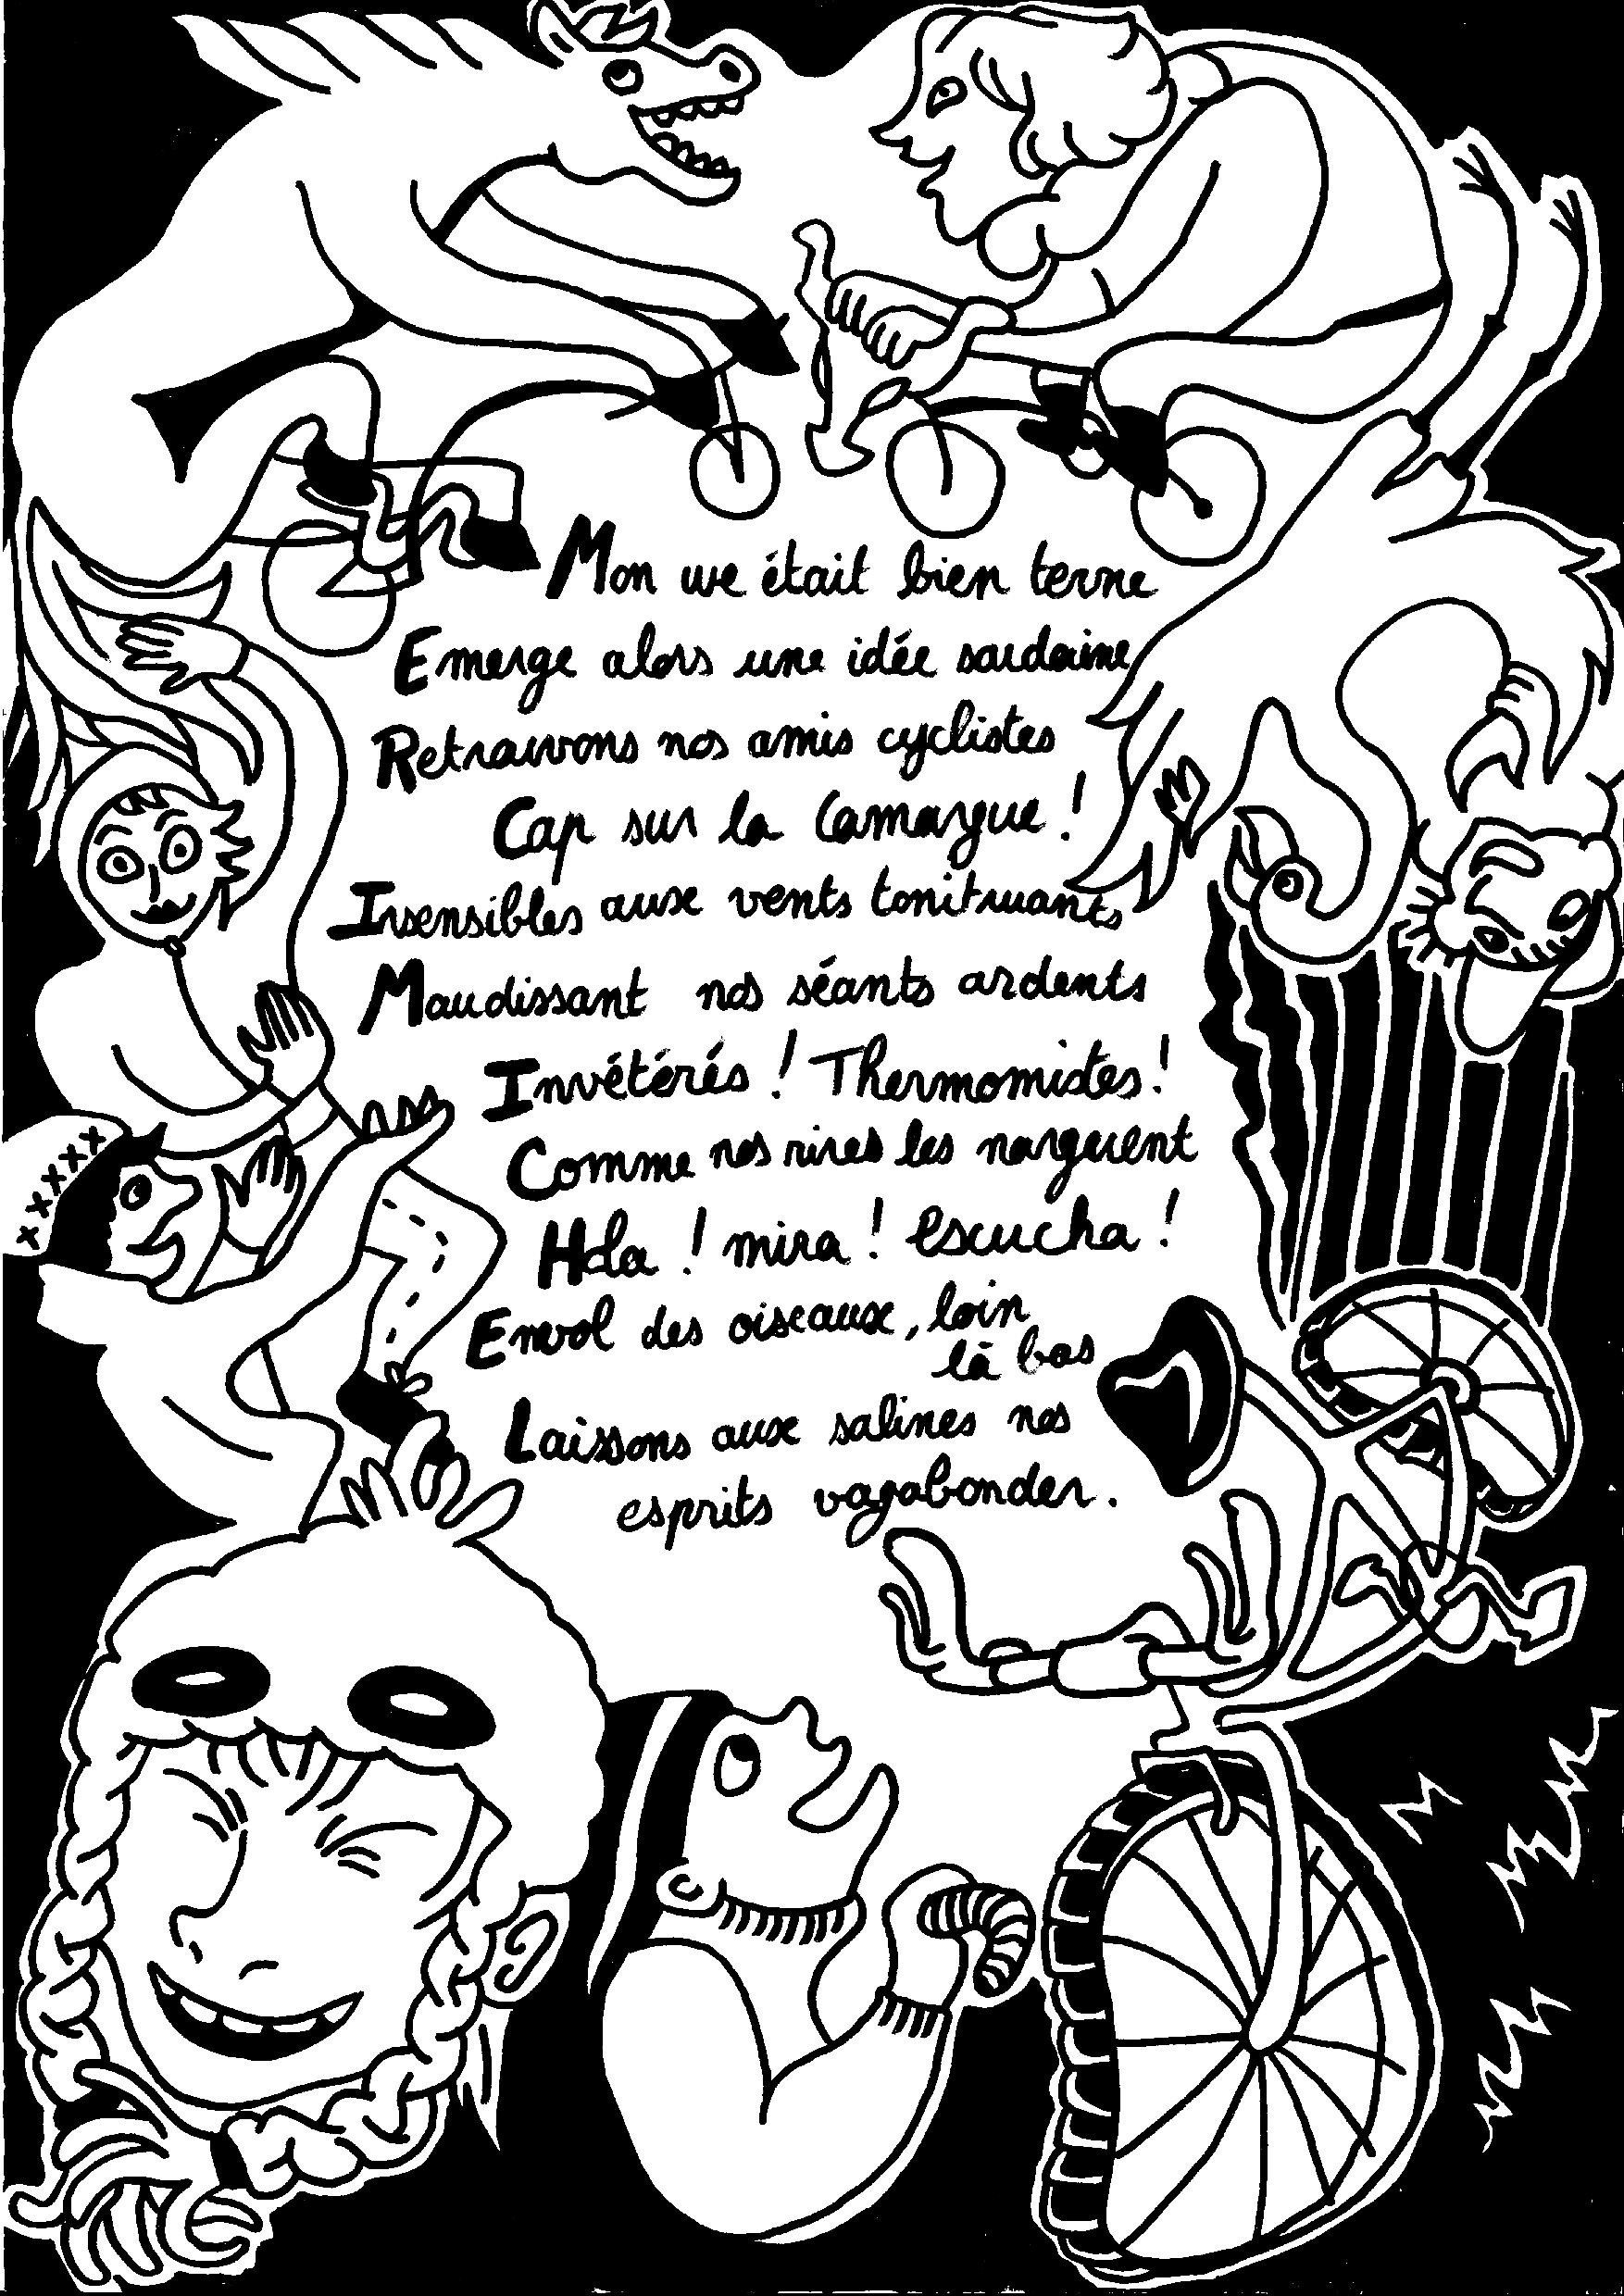 Mon we était bien terne
Emerge alors une idée soudaine
Retrouvons nos amis cyclistes
Cap sur la Camargue !
Insensibles aux vents tonitruants
Maudissant nos séants ardents
Invétérés ! Thermomistes !
Comme nos rires les narguent
Hola ! mira ! escucha !
Envol des oiseaux, loin
là bas
Laissons aux salines nos
esprits vagabonder.